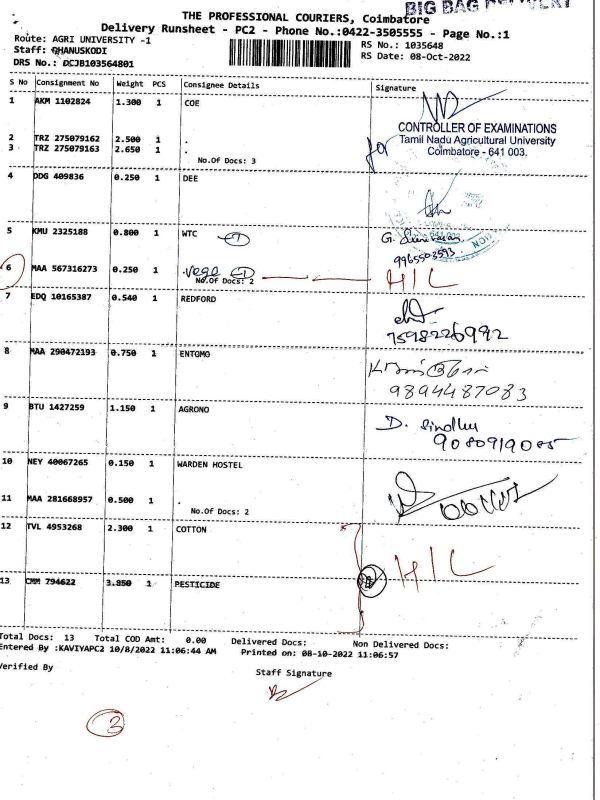 BIG BAG DELIVERY
THE PROFESSIONAL COURIERS, Coimbatore
Delivery Runsheet - PC2 - Phone No.:0422-3505555 - Page No.:1
Route: AGRI UNIVERSITY -1
RS No.: 1035648
Staff: DHANUSKODI
RS Date: 08-Oct-2022
DRS No.: DCJB103564801
S No Consignment No Weight PCS Consignee Details Signature
1 AKM 1102824 1.300 1 COE
CONTROLLER OF EXAMINATIONS
Tamil Nadu Agricultural University
Coimbatore - 641 003.
for
2 TRZ 275079162 2.500 1 .
3 TRZ 275079163 2.650 1 .
No.Of Docs: 3
4 DDG 409836 0.250 1 DEE
5 KMU 2325188 0.800 1 WTC
9965503593
6 MAA 567316273 0.250 1 .
No.Of Docs: 2
H/C
7 EDQ 10165387 0.540 1 REDFORD
7598226992
8 MAA 290472193 0.750 1 ENTOMO
9894487083
9 BTU 1427259 1.150 1 AGRONO
D. Sindhu
9080919085
10 NEY 40067265 0.150 1 WARDEN HOSTEL
11 MAA 281668957 0.500 1 .
No.Of Docs: 2
12 TVL 4953268 2.300 1 COTTON
H/C
13 CMM 794622 3.850 1 PESTICIDE
Total Docs: 13 Total COD Amt: 0.00 Delivered Docs: Non Delivered Docs:
Entered By :KAVIYAPC2 10/8/2022 11:06:44 AM Printed on: 08-10-2022 11:06:57
Verified By
Staff Signature
3